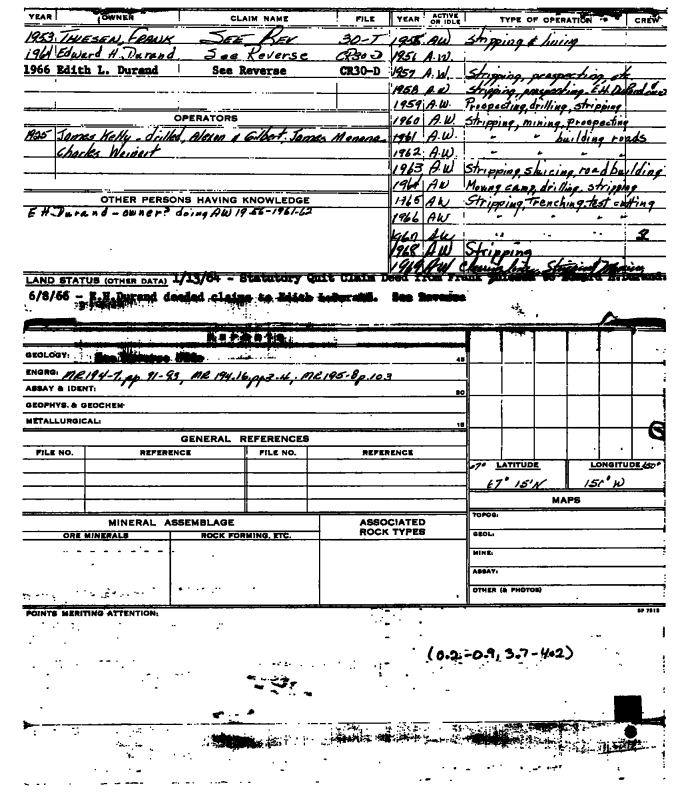 YEAR OWNER CLAIM NAME FILE YEAR ACTIVE OR IDLE TYPE OF OPERATION CREW
1953 THIESEN, FRANK SEE REV 30-T 1955 AW Stripping &
1964 Edward H. Durand See Reverse CR30-D 1956 A.W.
1966 Edith L. Durand See Reverse CR30-D 1957 A.W. Stripping, prospecting, etc
1958 A.W. Stripping, prospecting - E.H. Durand
1959 A.W. Prospecting, drilling, stripping
OPERATORS 1960 A.W. Stripping, mining, prospecting
1925 James Kelly - drilled, & Gilbert, James 1961 A.W. " " building roads
Charles Weinert 1962 A.W.
1963 AW Stripping, sluicing, road building
1964 AW Moving camp, drilling, stripping
OTHER PERSONS HAVING KNOWLEDGE 1965 AW Stripping, Trenching, test cutting
E H. Durand - owner? doing AW 1956-1961-62 1966 AW " " "
1967 AW " " 2
1968 AW Stripping
1969 AW
LAND STATUS (OTHER DATA) 1/13/64 - Statutory Quit Claim Deed from Frank to H. Durand.
6/8/66 - E.H. Durand deeded claims to Edith L. Durand. See Reverse
GEOLOGY: 45
ENGRG: MR194-7, pp 91-93, MR 194-16, pp MR195-8 p.103
ASSAY & IDENT: 50
GEOPHYS. & GEOCHEM-
METALLURGICAL: 15
GENERAL REFERENCES
FILE NO. REFERENCE FILE NO. REFERENCE
67° LATITUDE LONGITUDE 150°
67° 15' N 150° W
MAPS
MINERAL ASSEMBLAGE ASSOCIATED ROCK TYPES TOPOG:
ORE MINERALS ROCK FORMING, ETC. GEOL:
MINE:
ASSAY:
OTHER (& PHOTOS)
POINTS MERITING ATTENTION:
(0.2-0.9, 3.7-4.2)